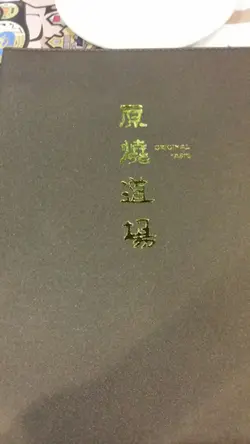 原燒道場
ORIGINAL
TASTE